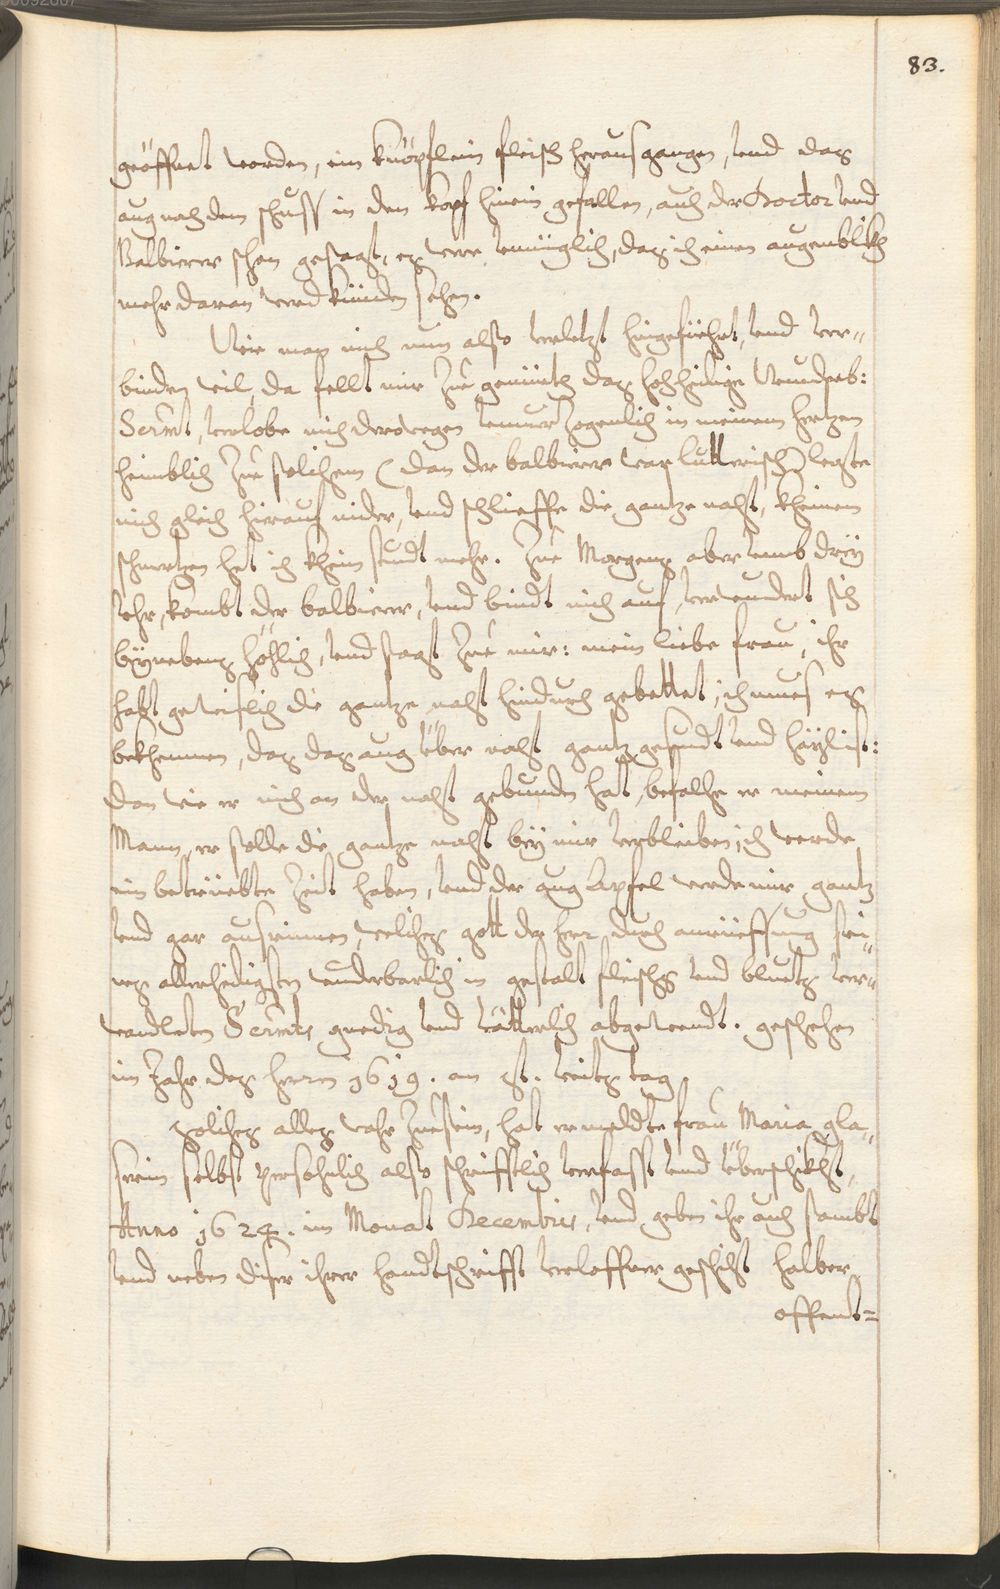 83.
geöffnet worden, ein knöpflein fleisch herausgangen, vnd daz
aug nach dem schuss in den kopf hinein gefallen, auch der Doctor vnd
Balbierer schon gesagt, ez were vnmüglich, daz ich einen augenblikh
mehr daran werd künden sehen.
Wie man mich nun also verletzt heimgefüehrt, vnd ver„
binden wil, da fellt mir zue gemüeth daz hochheilige Wunderb:
Scrmt, verlobe mich derwegen vnuerzogenlich in meinem hertzen
heimblich zue solichem (dan der balbierer war lutterisch) legte
mich gleich hierauf nider, vnd schlieffe die gantze nacht, kheinen
schmertzen het ich khein stundt mehr. Zue Morgenz aber vmb dry
vhr, kombt der balbierer, vnd bindt mich auf, verwundert sich
bynebenz höchlich, vnd sagt zue mir: mein liebe frau, ihr
habt gewislich die gantze nacht hindurch gebettet; ich mues ez
bekhennen, daz daz aug über nacht gantz gesundt vnd hayl ist:
dan wie er mich an der nacht gebunden hat, befalhe er meinem
Mann, er solle die gantze nacht bey mir verbleiben; ich werde
ein betrüebte zeit haben, vnd der aug Apfel werde mir gantz
vnd gar ausrinnen, welchez gott der herr durch anrüeffung sei„
nez allerheiligsten wunderbarlich in gestalt fleischz vnd bluetz ver„
wandleten Scrmts gnedig vnd vätterlich abgewendt. geschehen
im Jahr dez herrn 1619. an St. veitz tag.
Solichez allez wahr zuesein, hat ermeldte frau Maria gla„
serin selbst persohnlich also schrifftlich verfasst vnd überschikht,
Anno 1624. im Monat Decembris, vnd geben ihr auch sambt
vnd neben diser ihrer handtschrifft verloffner geschicht halber
offent=